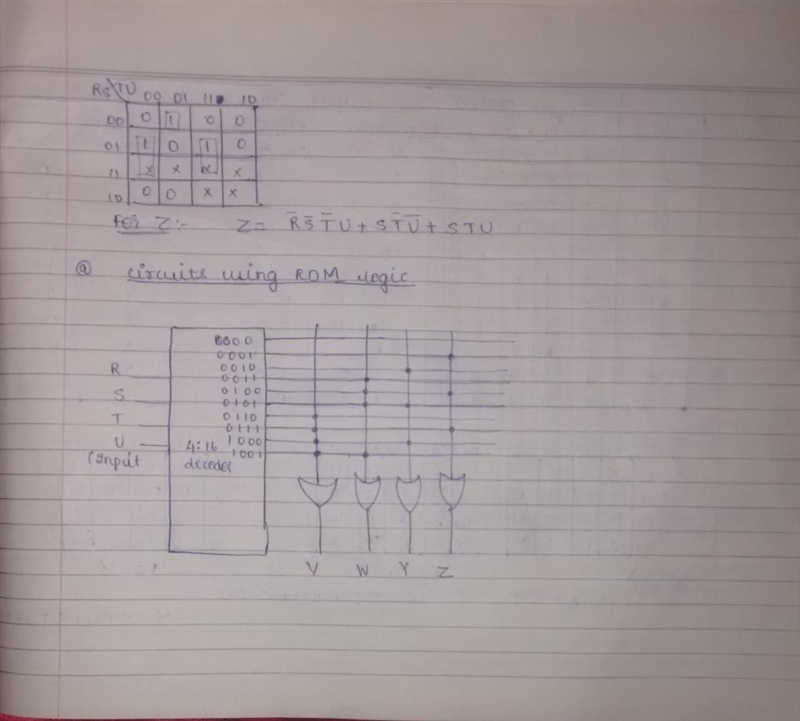 RS\TU 00 01 11 10
00 0 1 0 0
01 1 0 1 0
11 x x x x
10 0 0 x x
For Z:- Z = R̅ S̅ T̅ U + S T̅ U̅ + S T U
@ circuits using ROM logic
0000
0001
R 0010
0011
S 0100
0101
T 0110
0111
U 4:16 1000
(Input decoder 1001
V W Y Z